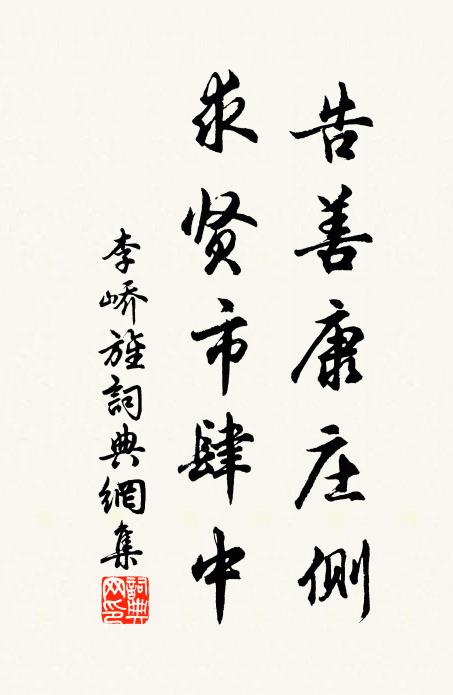 告善康庄侧
求贤市肆中
李峤旌詞典網集
詞典网印